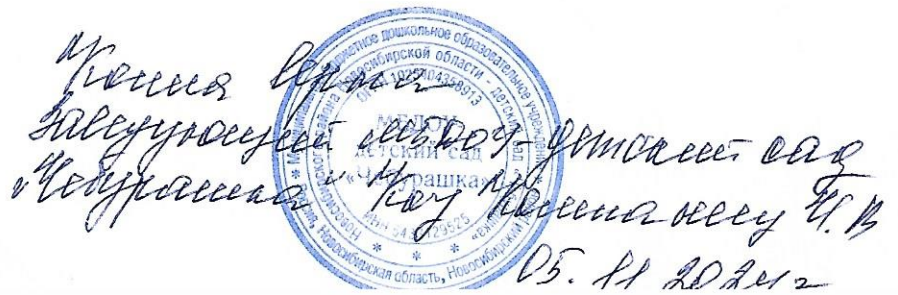 Копия верна
Заведующий МБДОУ - детский сад
"Чебурашка"
05.11.2024 г
* Муниципальное бюджетное дошкольное образовательное учреждение
Новосибирского района Новосибирской области - детский сад
ОГРН 1025404358913
МБДОУ
детский сад
«Чебурашка»
ИНН 5433129525
Новосибирская область, Новосибирский